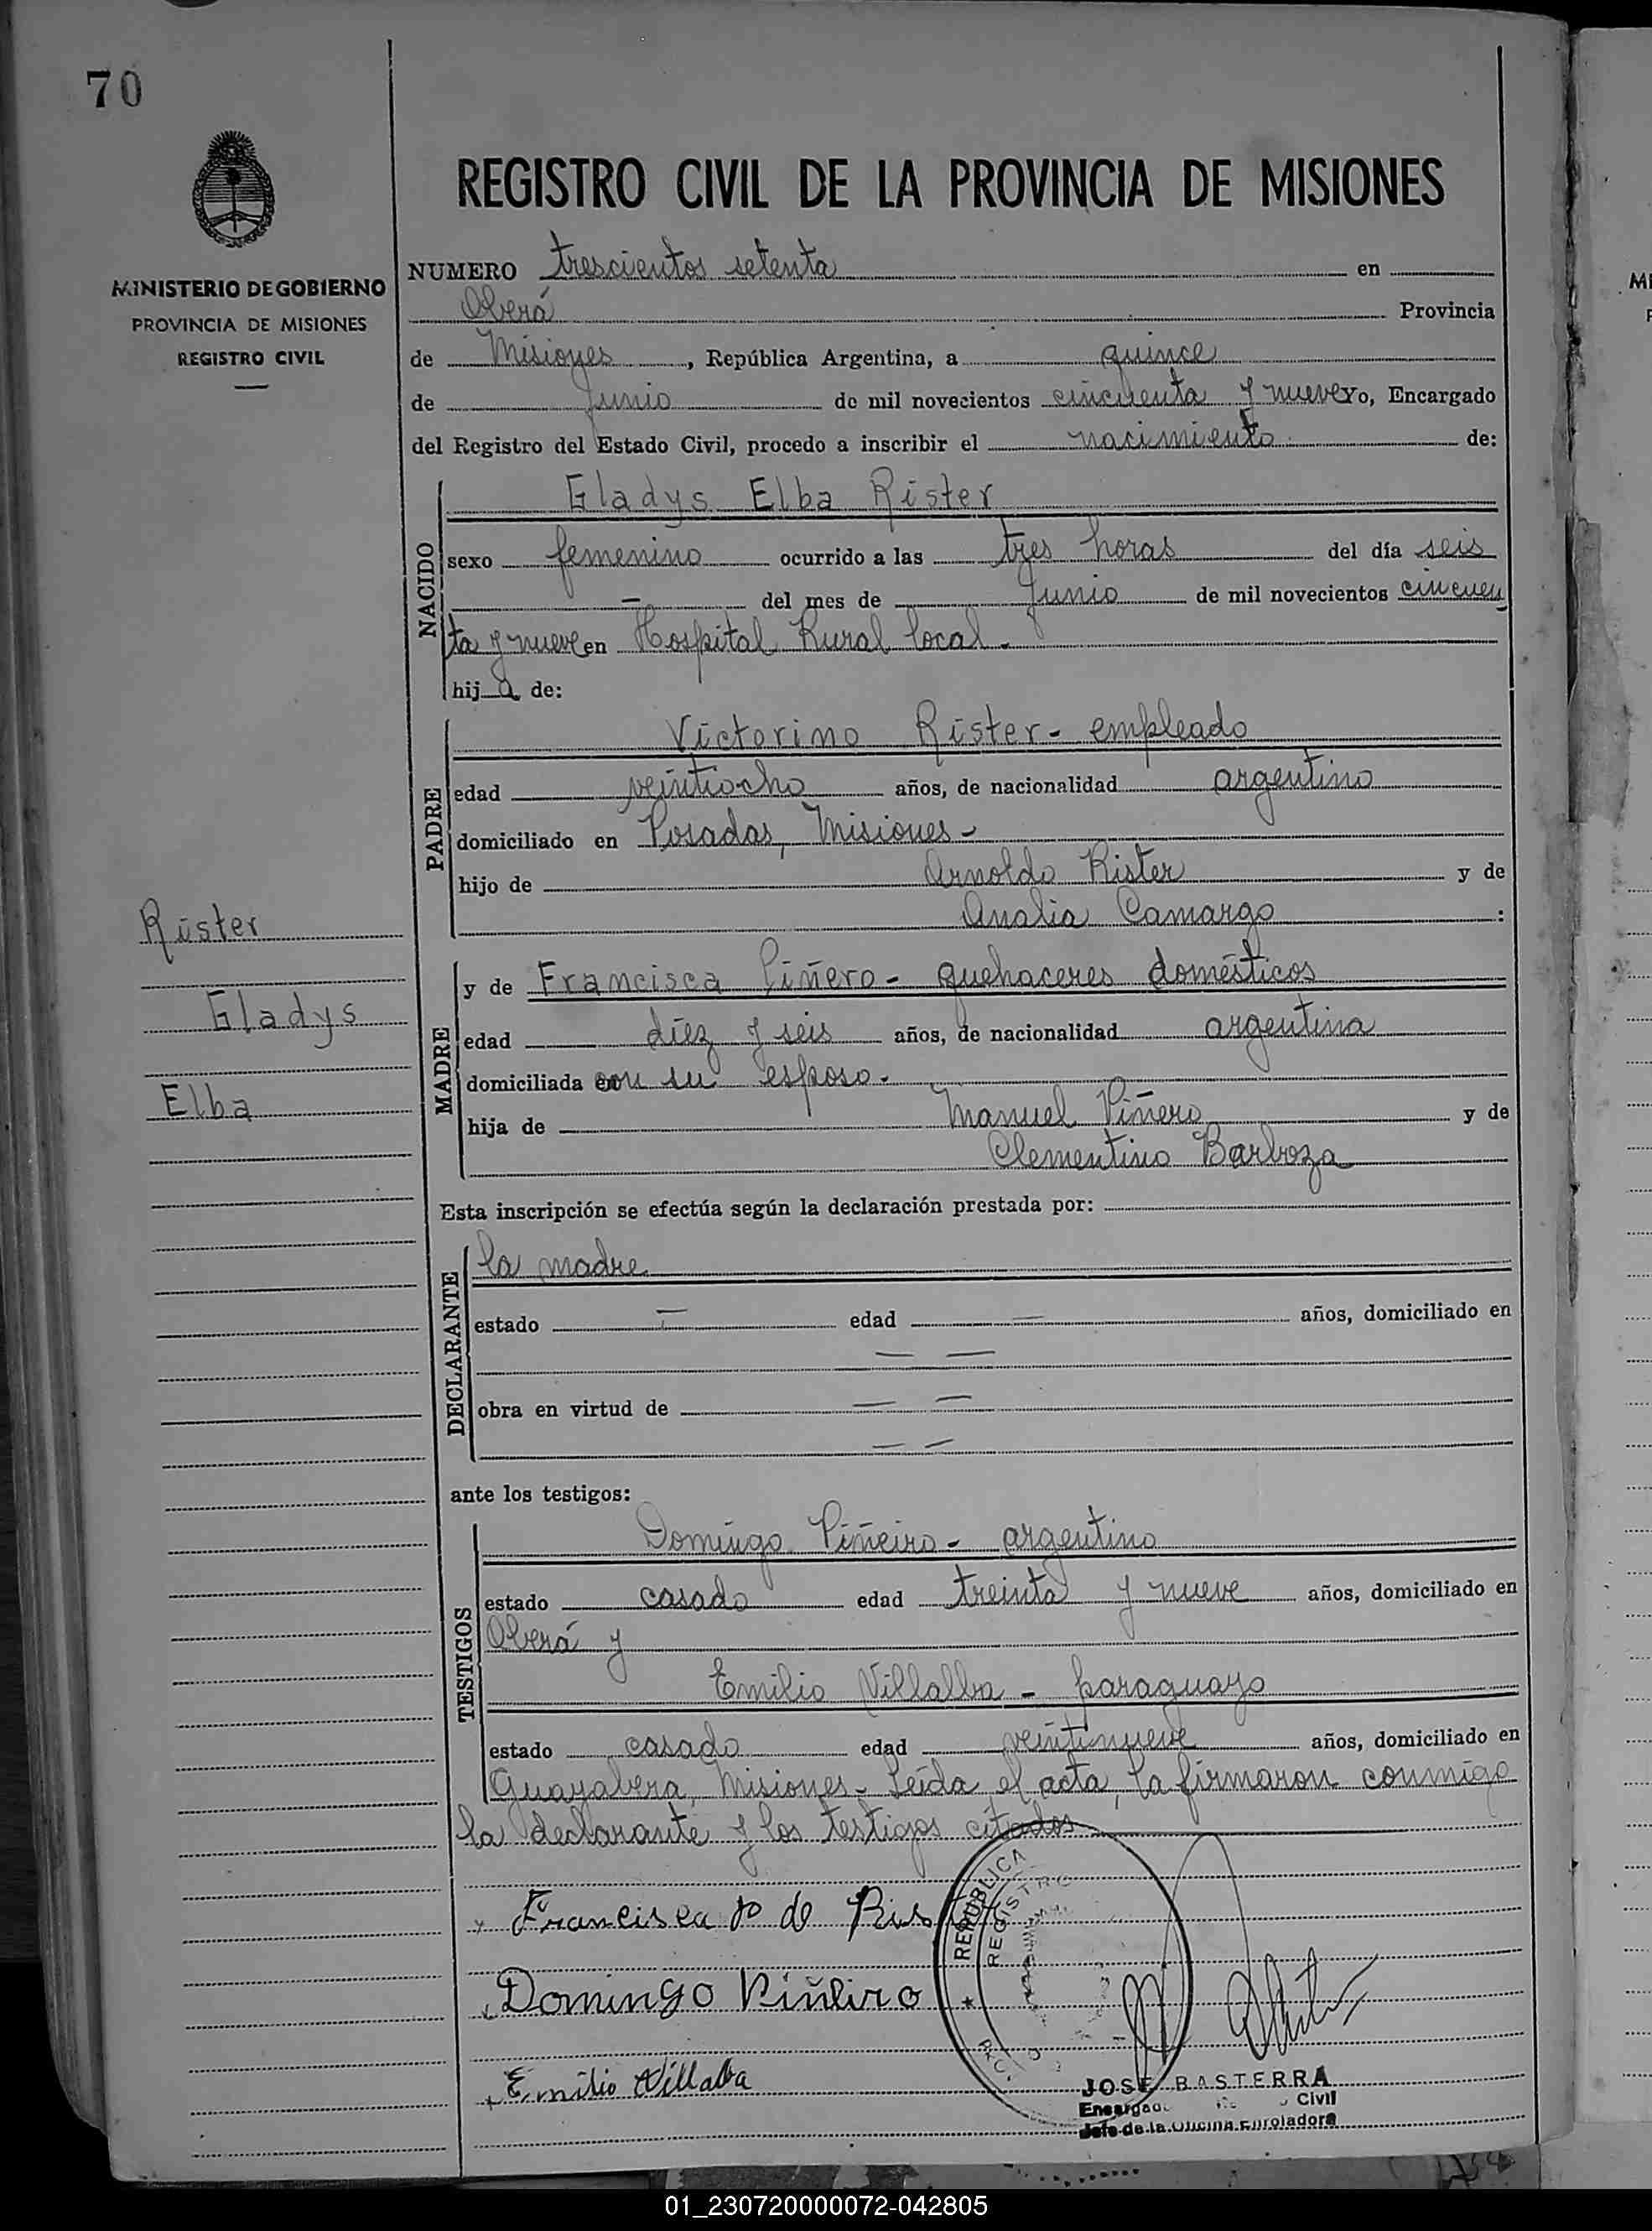 70
MINISTERIO DE GOBIERNO
PROVINCIA DE MISIONES
REGISTRO CIVIL
Rister
Gladys
Elba
REGISTRO CIVIL DE LA PROVINCIA DE MISIONES
NUMERO trescientos setenta en
Oberá Provincia
de Misiones, República Argentina, a quince
de Junio de mil novecientos cincuenta y nueve yo, Encargado
del Registro del Estado Civil, procedo a inscribir el nacimiento de:
NACIDO
Gladys Elba Rister
sexo femenino ocurrido a las tres horas del día seis
— del mes de Junio de mil novecientos cincuen
ta y nueve en Hospital Rural local.
hija de:
PADRE
Victorino Rister - empleado
edad veintiocho años, de nacionalidad argentino
domiciliado en Posadas, Misiones -
hijo de Arnoldo Rister y de
Analia Camargo :
MADRE
y de Francisca Piñero - quehaceres domésticos
edad diez y seis años, de nacionalidad argentina
domiciliada con su esposo.
hija de Manuel Piñero y de
Clementina Barboza
Esta inscripción se efectúa según la declaración prestada por:
DECLARANTE
la madre
estado — edad — años, domiciliado en
— —
obra en virtud de — —
— —
ante los testigos:
TESTIGOS
Domingo Piñeiro - argentino
estado casado edad treinta y nueve años, domiciliado en
Oberá y
Emilio Villalba - paraguayo
estado casado edad veintinueve años, domiciliado en
Guayabera, Misiones - Leída el acta, la firmaron conmigo
la declarante y los testigos citados
REPUBLICA
REGISTRO
Francisca P de Rister
Domingo Piñeiro
Emilio Villalba
JOSE BASTERRA
Encargado Civil
Jefe de la Oficina Enroladora
01_230720000072-042805